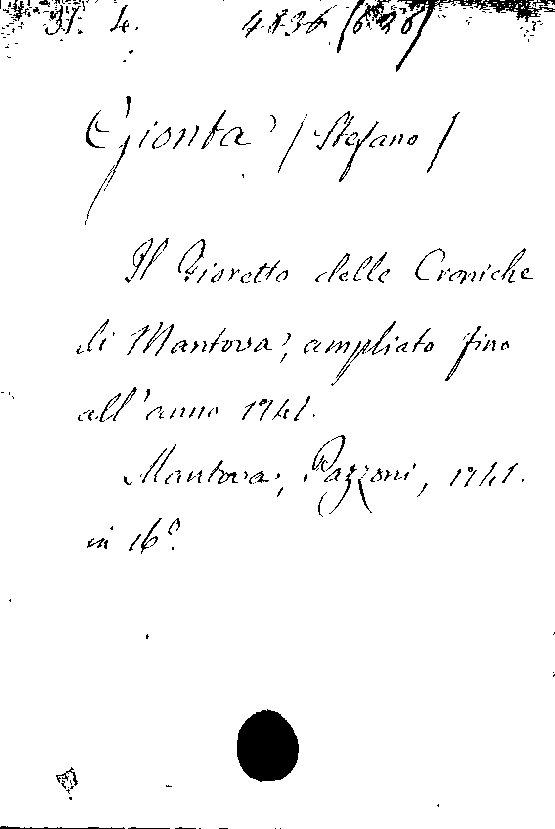 4836 (636)
Gionta (Stefano)
Il Fioretto delle Croniche
di Mantova, ampliato fino
all'anno 1741.
Mantova, Pazzoni, 1741.
in 16º.